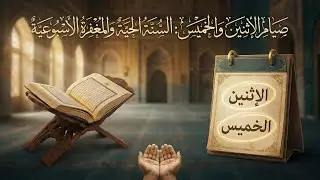 صِيَامُ الِاثْنَيْنِ وَالْخَمِيسِ: السُّنَّةُ الْحَيَّةُ وَالْمَغْفِرَةُ الْأُسْبُوعِيَّةُ
الإثنين
الخميس